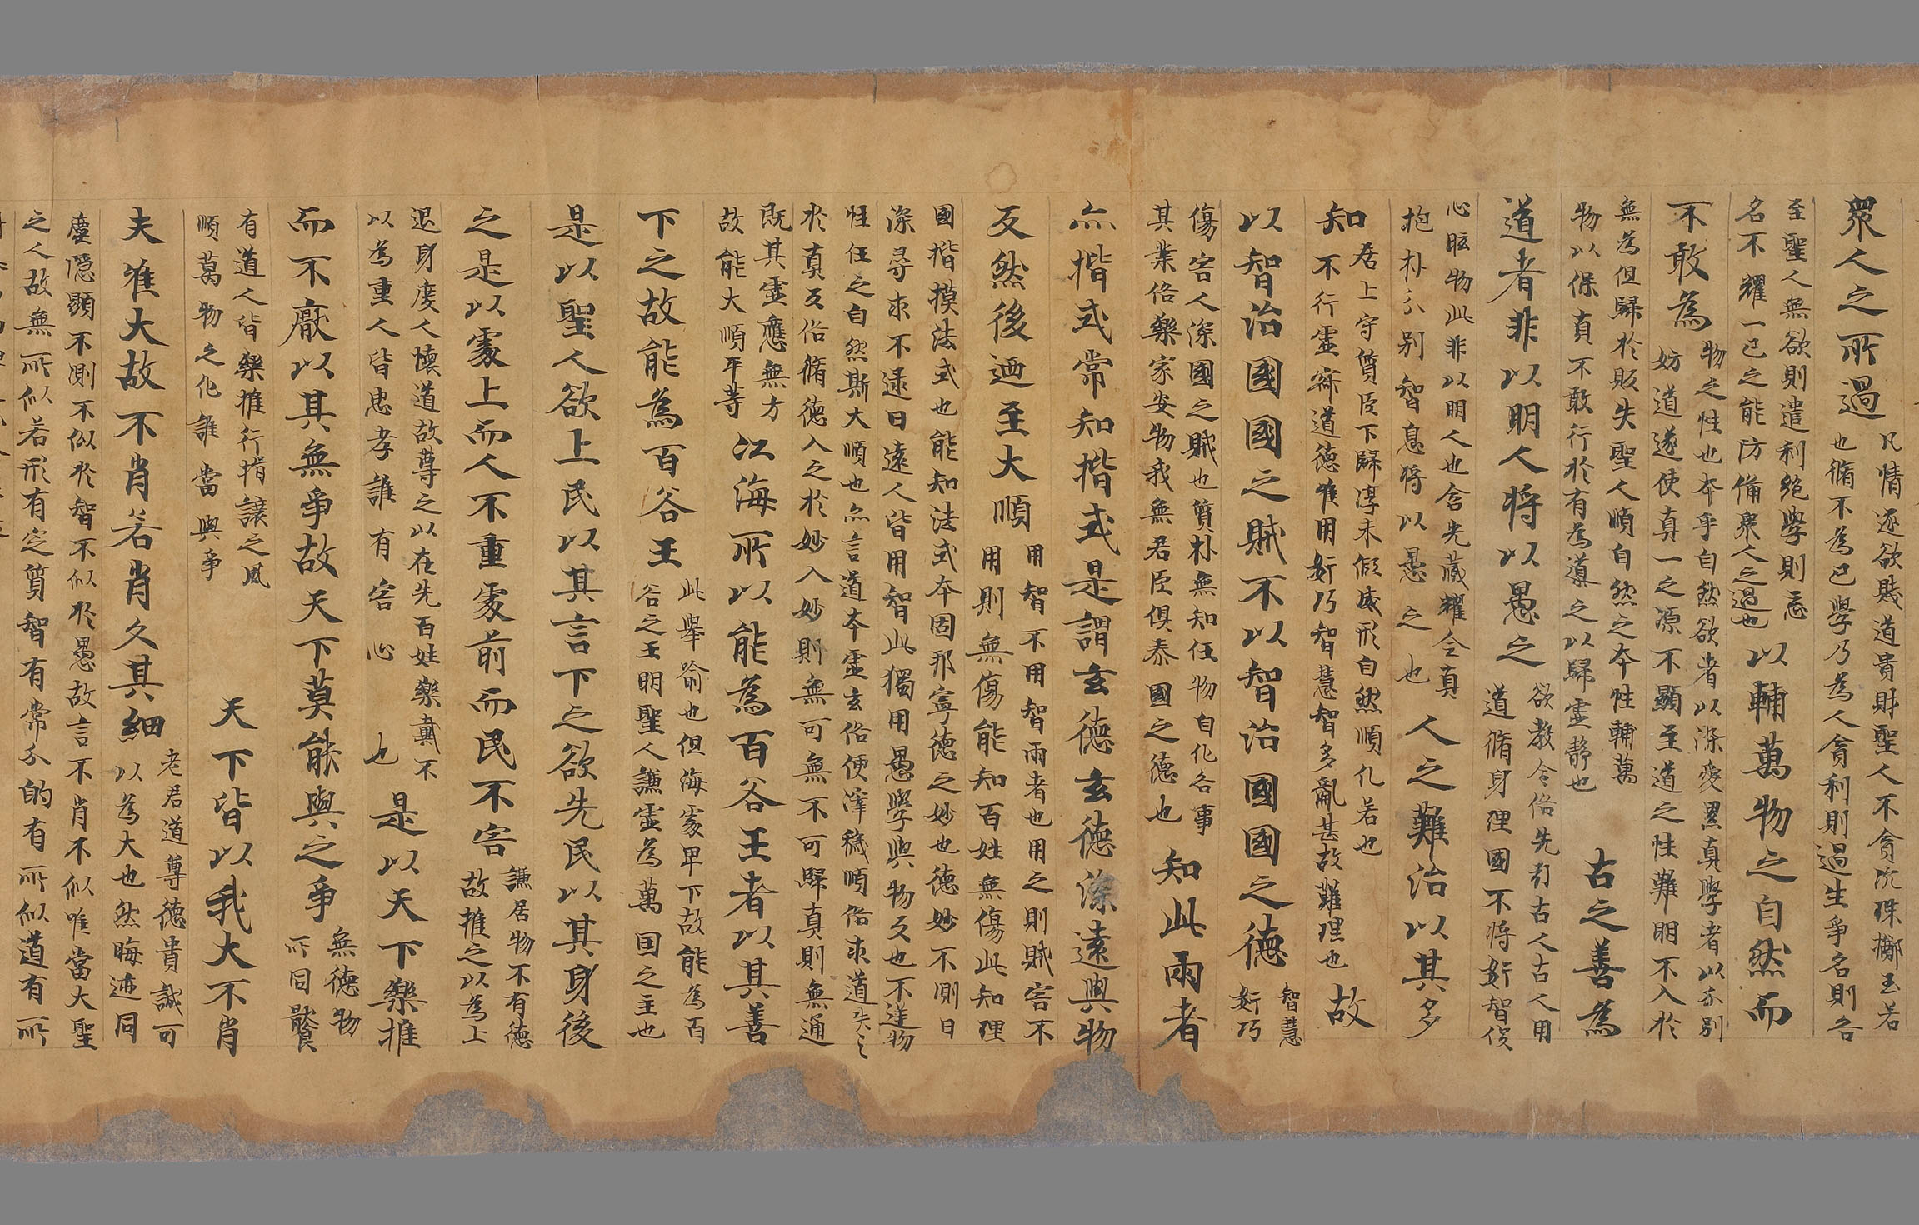 衆人之所過
凡情逐欲賤道貴財聖人不貪沉珠擲玉若
也脩不為已學乃為人貪利則過生爭名則咎
至聖人無欲則遣利絕學則忘
名不耀一已之能防備衆人之過也
以輔萬物之自然而
不敢為
物之性也本乎自然欲者以染愛累真學者以分別
妨道遂使真一之源不顯至道之性難明不入於
無為但歸於敗失聖人順自然之本性輔萬
物以保真不敢行於有為導之以歸虛静也
古之善為
道者非以明人将以愚之
欲教令俗先古人古人用
道脩身理國不将姧智俊
心眩物此非以明人也含光藏耀令真
抱朴分别智息将以愚之也
人之難治以其多
知
居上守質臣下歸淳未假威形自然順化若也
不行虛寂道德唯用姧巧智慧智多亂甚故難理也
故
以智治國國之賊不以智治國國之德
智慧
姧巧
傷害人深國之賊也質朴無知任物自化各事
其業俗樂家安物我無君臣俱泰國之德也
知此兩者
亦揩式常知揩式是謂玄德玄德深遠與物
反然後迺至大順
用智不用智兩者也用之則賊害不
用則無傷能知百姓無傷此知理
國揩摸法式也能知法式本固邦寧德之妙也德妙不測曰
深尋求不逮曰遠人皆用智此獨用愚學與物反也不逆物
性任之自然斯大順也亦言道本虛玄俗使滓穢順俗求道失之
於真反俗脩德入之於妙入妙則無可無不可歸真則無通
既其虛應無方
故能大順平等
江海所以能為百谷王者以其善
下之故能為百谷王
此舉喻也但海處卑下故能為百
谷之王明聖人謙虛為萬国之主也
是以聖人欲上民以其言下之欲先民以其身後
之是以處上而人不重處前而民不害
謙居物不有德
故推之以為上
退身度人懷道故尊之以在先百姓樂戴不
以為重人皆思孝誰有害心也
是以天下樂推
而不厭以其無爭故天下莫能與之爭
無德物
所同
有道人皆樂推行揩讓之風
順萬物之化誰當與爭
天下皆以我大不肖
夫唯大故不肖若肖久其細
老君道尊德貴誠可
以為大也然晦迹同
塵隱顯不測不似於智不似於愚故言不肖不似唯當大聖
之人故無所似若形有定質智有常分的有所似道有所